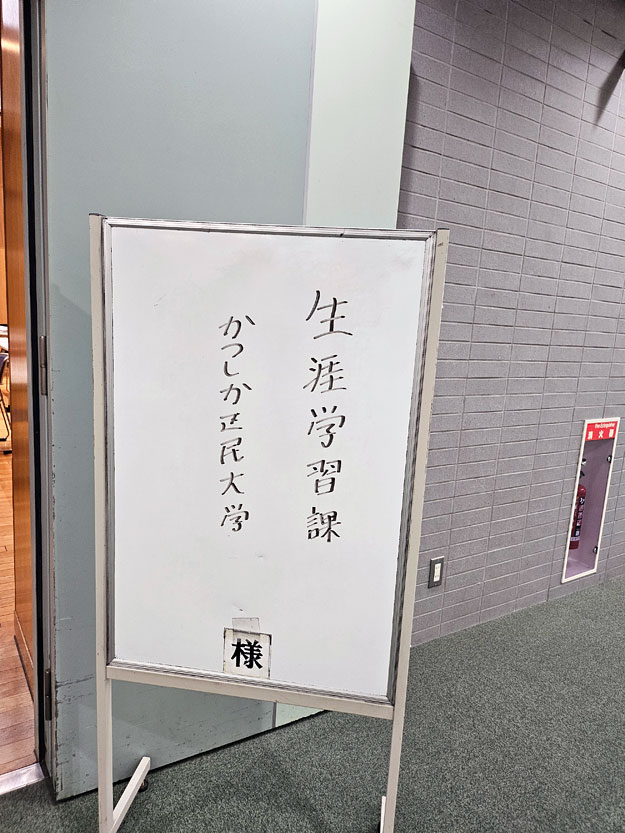 生涯学習課
かつしか区民大学
様
Fire Extinguisher
消火器